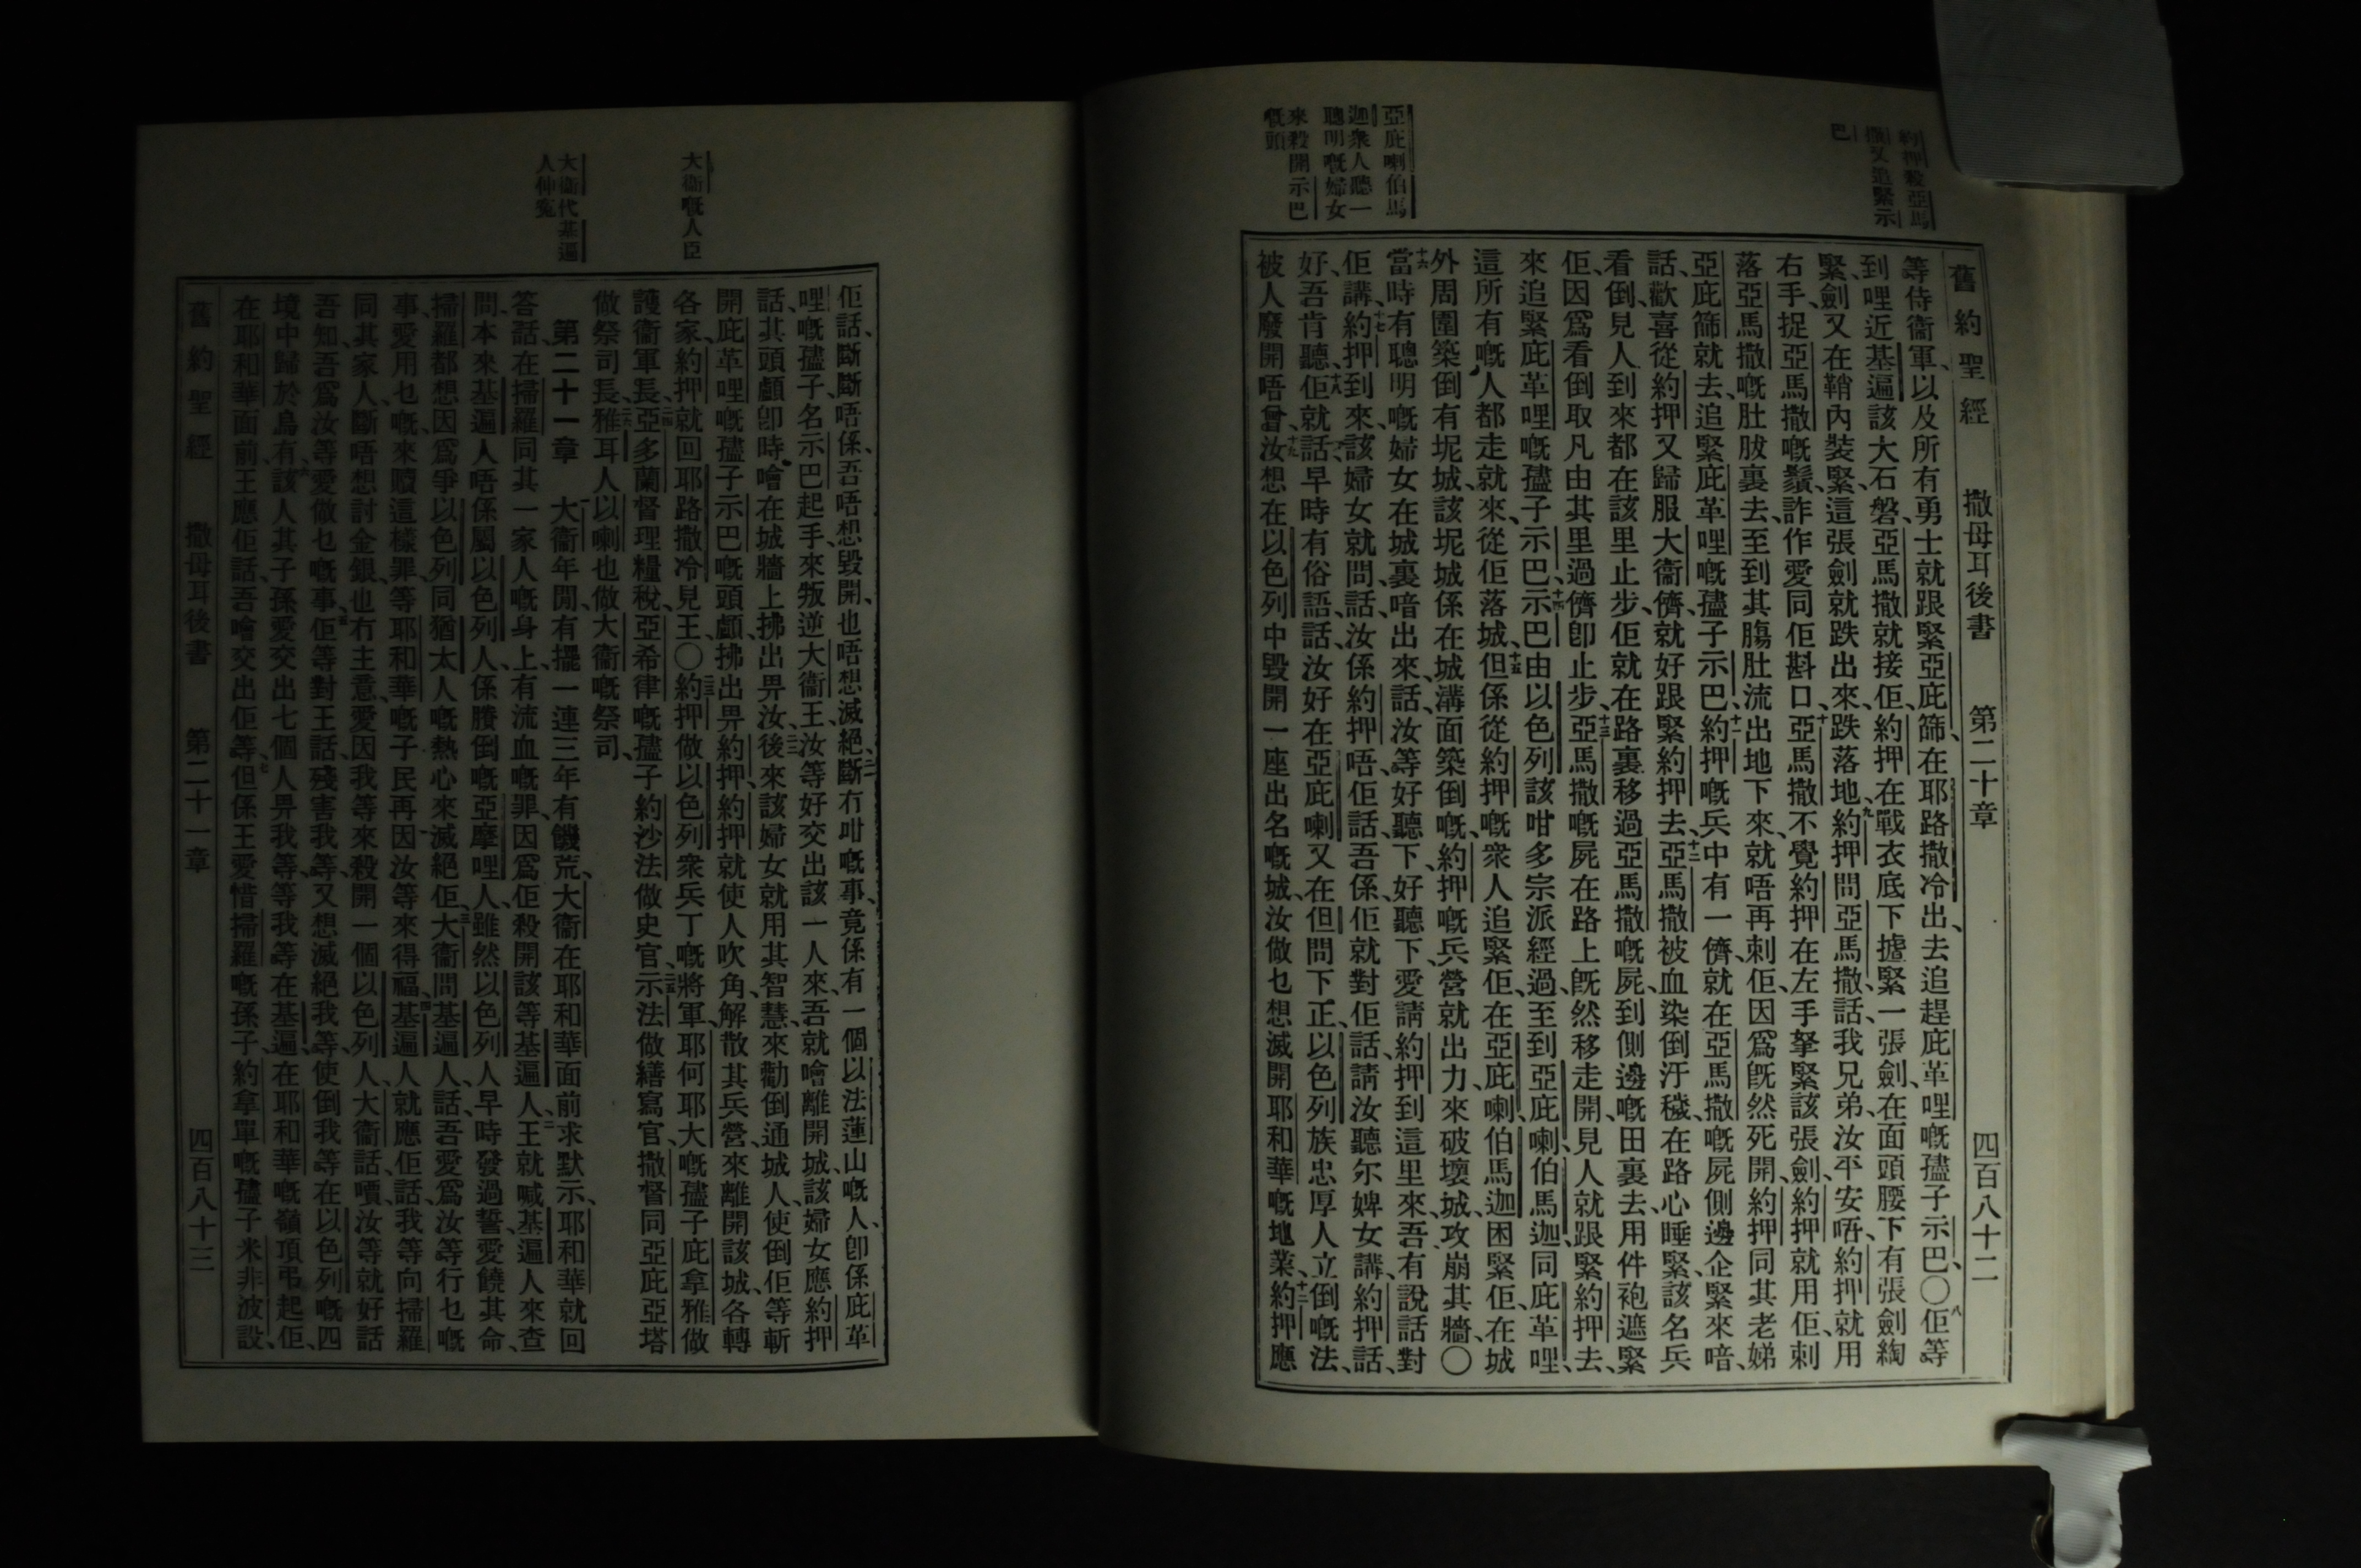 舊約聖經 撒母耳後書 第二十章 四百八十二
約押殺亞馬
撒又追緊示
巴
亞庇喇伯馬
迦衆人聽一
聰明嘅婦女
來殺開示巴
嘅頭
等侍衞軍、以及所有勇士就跟緊亞庇篩、在耶路撒冷出、去追趕庇革哩嘅孻子示巴、〇八佢等
到哩近基遍該大石磐、亞馬撒就接佢、約押在戰衣底下摅緊一張劍、在面頭腰下有張劍綯
緊、劍又在鞘內裝緊、這張劍就跌出來、跌落地、九約押問亞馬撒話、我兄弟、汝平安唔、約押就用
右手、捉亞馬撒嘅鬚、詐作愛同佢斟口、十亞馬撒不覺約押在左手拏緊該張劍、約押就用佢、刺
落亞馬撒嘅肚胈裏去、至到其腸肚流出地下來、就唔再刺佢、因爲旣然死開、約押同其老娣
亞庇篩就去、追緊庇革哩嘅孻子示巴、十一約押嘅兵中有一儕、就在亞馬撒嘅屍側邊企緊來喑、
話、歡喜從約押又歸服大衞儕、就好跟緊約押去、十二亞馬撒被血染倒汙穢、在路心睡緊、該名兵
看倒、見人到來都在該里止步、佢就在路裏移過亞馬撒嘅屍、到側邊嘅田裏去、用件袍遮緊
佢、因爲看倒取凡由其里過儕卽止步、十三亞馬撒嘅屍在路上旣然移走開、見人就跟緊約押去、
來追緊庇革哩嘅孻子示巴、十四示巴由以色列該咁多宗派經過、至到亞庇喇、伯馬迦、同庇革哩、
這所有嘅人都走就來、從佢落城、十五但係從約押嘅衆人追緊佢、在亞庇喇、伯馬迦困緊佢、在城
外周圍築倒有坭城、該坭城係在城溝面築倒嘅、約押嘅兵營就出力、來破壞城、攻崩其牆、〇
十六當時有聰明嘅婦女在城裏喑出來、話、汝等好聽下、好聽下、愛請約押到這里來、吾有說話對
佢講、十七約押到來、該婦女就問、話、汝係約押唔、佢話、吾係、佢就對佢話、請汝聽尔婢女講、約押話、
好、吾肯聽、十八佢就話、早時有俗語、話、汝好在亞庇喇又在但問下正、以色列族忠厚人立倒嘅法、
被人廢開唔曾、十九汝想在以色列中毀開一座出名嘅城、汝做乜想滅開耶和華嘅地業、二十約押應
大衞嘅人臣
大衞代基遍
人伸寃
佢話、斷斷唔係、吾唔想毀開、也唔想滅絕、二一斷冇咁嘅事、竟係有一個以法蓮山嘅人、卽係庇革
哩嘅孻子、名示巴起手、來叛逆大衞王、汝等好交出該一人來、吾就噲離開城、該婦女應約押
話、其頭顱卽時噲在城牆上拂出畀汝、二二後來該婦女就用其智慧、來勸倒通城人、使倒佢等斬
開庇革哩嘅孻子示巴嘅頭顱、拂出畀約押、約押就使人吹角、解散其兵營、來離開該城、各轉
各家、約押就回耶路撒冷見王、〇二三約押做以色列衆兵丁嘅將軍、耶何耶大嘅孻子庇拿雅、做
護衞軍長、二四亞多蘭督理糧稅、亞希律嘅孻子約沙法做史官、二五示法做繕寫官、撒督同亞庇亞塔
做祭司長、二六雅耳人以喇也做大衞嘅祭司、
第二十一章 一大衞年閒、有擺一連三年有饑荒、大衞在耶和華面前求默示、耶和華就回
答話、在掃羅同其一家人嘅身上、有流血嘅罪、因爲佢殺開該等基遍人、二王就喊基遍人來查
問、本來基遍人唔係屬以色列人、係賸倒嘅亞摩哩人、雖然以色列人早時發過誓、愛饒其命、
掃羅都想因爲爭以色列同猶太人嘅熱心來滅絕佢、三大衞問基遍人、話、吾愛爲汝等行乜嘅
事、愛用乜嘅、來贖這樣罪、等耶和華嘅子民再因汝等來得福、四基遍人就應佢話、我等向掃羅
同其家人、斷唔想討金銀、也冇主意、愛因我等來殺開一個以色列人、大衞話、嘖、汝等就好話
吾知、吾爲汝等愛做乜嘅事、五佢等對王話、殘害我等、又想滅絕我等、使倒我等在以色列嘅四
境中歸於烏有、六該人其子孫愛交出七個人畀我等、等我等在基遍、在耶和華嘅嶺頂弔起佢、
在耶和華面前、王應佢話、吾噲交出佢等、七但係王愛惜掃羅嘅孫子、約拿單嘅孻子米非波設、
舊約聖經 撒母耳後書 第二十一章 四百八十三